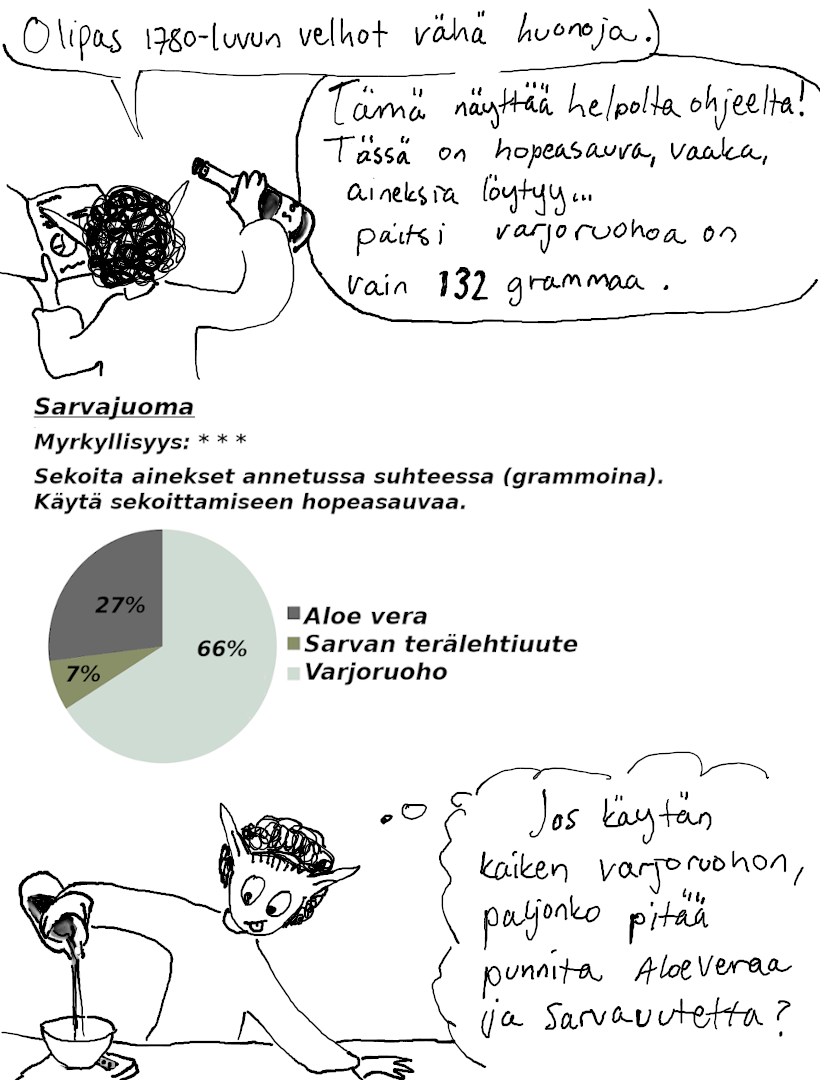 Olipas 1780-luvun velhot vähä huonoja.
Tämä näyttää helpolta ohjeelta!
Tässä on hopeasauva, vaaka,
aineksia löytyy...
paitsi varjoruohoa on
vain 132 grammaa.
Sarvajuoma
Myrkyllisyys: * * *
Sekoita ainekset annetussa suhteessa (grammoina).
Käytä sekoittamiseen hopeasauvaa.
27%
66%
7%
Aloe vera
Sarvan terälehtiuute
Varjoruoho
Jos käytän
kaiken varjoruohon,
paljonko pitää
punnita AloeVeraa
ja Sarvauutetta?